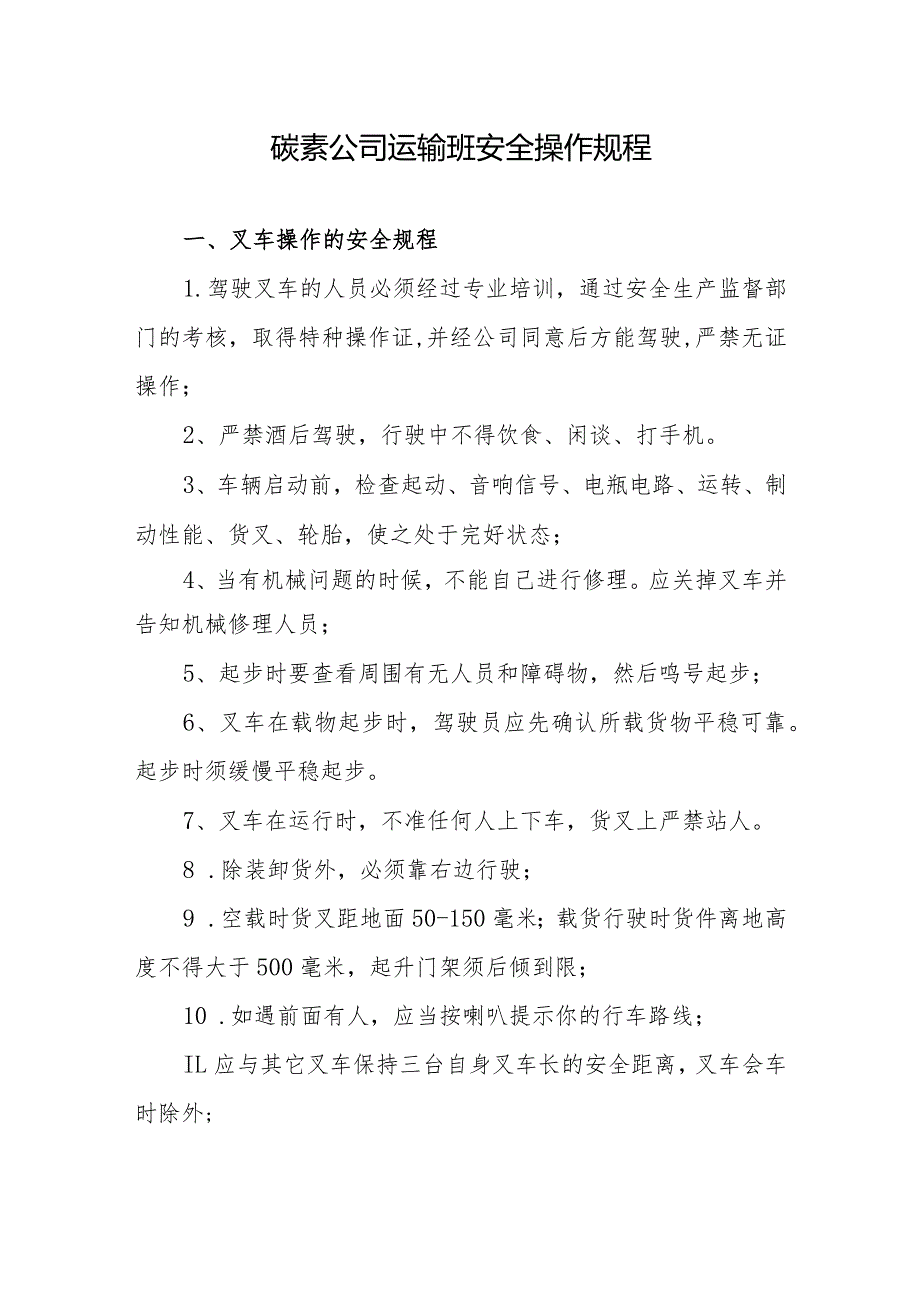 碳素公司运输班安全操作规程
一、叉车操作的安全规程
1.驾驶叉车的人员必须经过专业培训，通过安全生产监督部
门的考核，取得特种操作证,并经公司同意后方能驾驶,严禁无证
操作；
2、严禁酒后驾驶，行驶中不得饮食、闲谈、打手机。
3、车辆启动前，检查起动、音响信号、电瓶电路、运转、制
动性能、货叉、轮胎，使之处于完好状态；
4、当有机械问题的时候，不能自己进行修理。应关掉叉车并
告知机械修理人员；
5、起步时要查看周围有无人员和障碍物，然后鸣号起步；
6、叉车在载物起步时，驾驶员应先确认所载货物平稳可靠。
起步时须缓慢平稳起步。
7、叉车在运行时，不准任何人上下车，货叉上严禁站人。
8 .除装卸货外，必须靠右边行驶；
9 .空载时货叉距地面50-150毫米；载货行驶时货件离地高
度不得大于500毫米，起升门架须后倾到限；
10 .如遇前面有人，应当按喇叭提示你的行车路线；
IL应与其它叉车保持三台自身叉车长的安全距离，叉车会车
时除外;